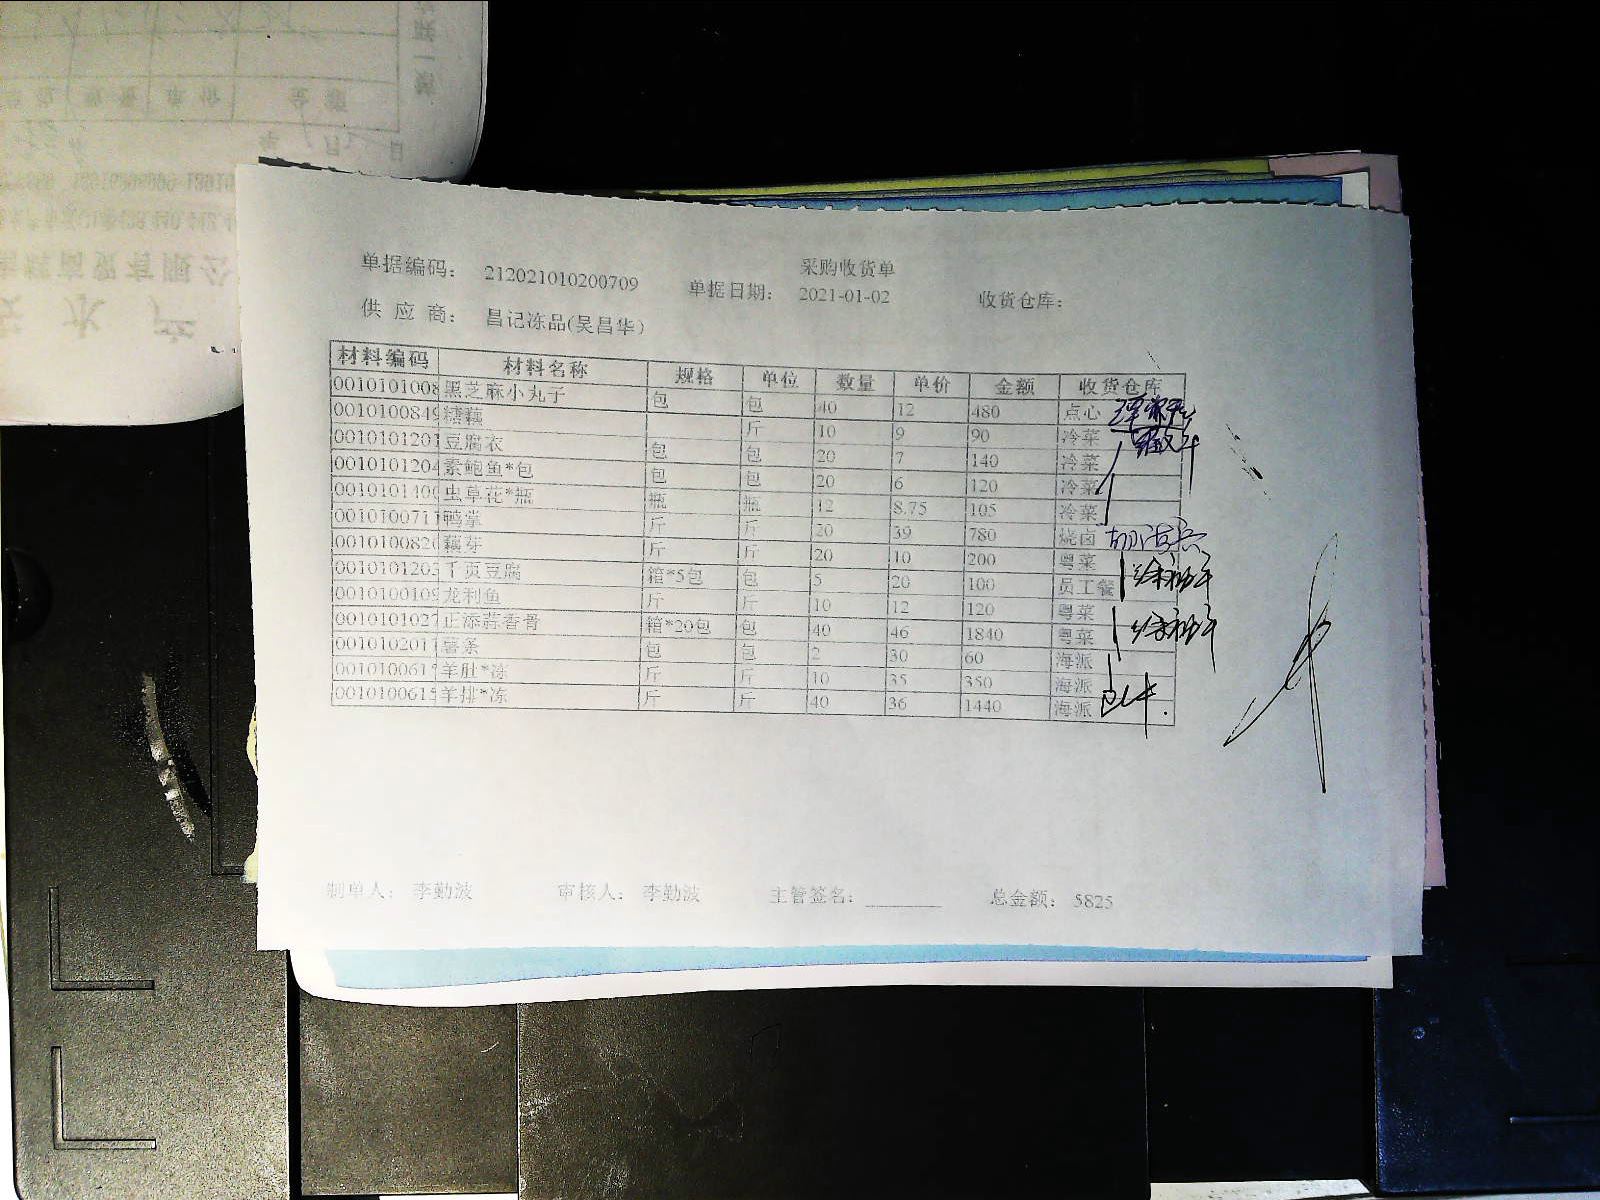 采购收货单
单据编码： 212021010200709 单据日期： 2021-01-02 收货仓库：
供 应 商： 昌记冻品(吴昌华)
材料编码 材料名称 规格 单位 数量 单价 金额 收货仓库
0010101008 黑芝麻小丸子 包 包 40 12 480 点心
0010100849 糖藕 斤 10 9 90 冷菜
0010101201 豆腐衣 包 包 20 7 140 冷菜
0010101204 素鲍鱼*包 包 包 20 6 120 冷菜
0010101400 虫草花*瓶 瓶 瓶 12 8.75 105 冷菜
0010100711 鸭掌 斤 斤 20 39 780 烧卤
0010100820 藕芽 斤 斤 20 10 200 粤菜
0010101203 千页豆腐 箱*5包 包 5 20 100 员工餐
0010100109 龙利鱼 斤 斤 10 12 120 粤菜
0010101027 正添蒜香骨 箱*20包 包 40 46 1840 粤菜
0010102011 薯条 包 包 2 30 60 海派
0010100617 羊肚*冻 斤 斤 10 35 350 海派
0010100615 羊排*冻 斤 斤 40 36 1440 海派
制单人： 李勤波 审核人： 李勤波 主管签名： 总金额： 5825